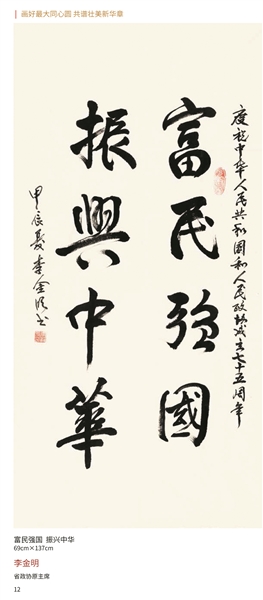 画好最大同心圆 共谱壮美新华章
庆祝中华人民共和国和人民政协成立七十五周年
富民强國
振興中華
甲辰夏李金明书
富民强国 振兴中华
69cm×137cm
李金明
省政协原主席
12